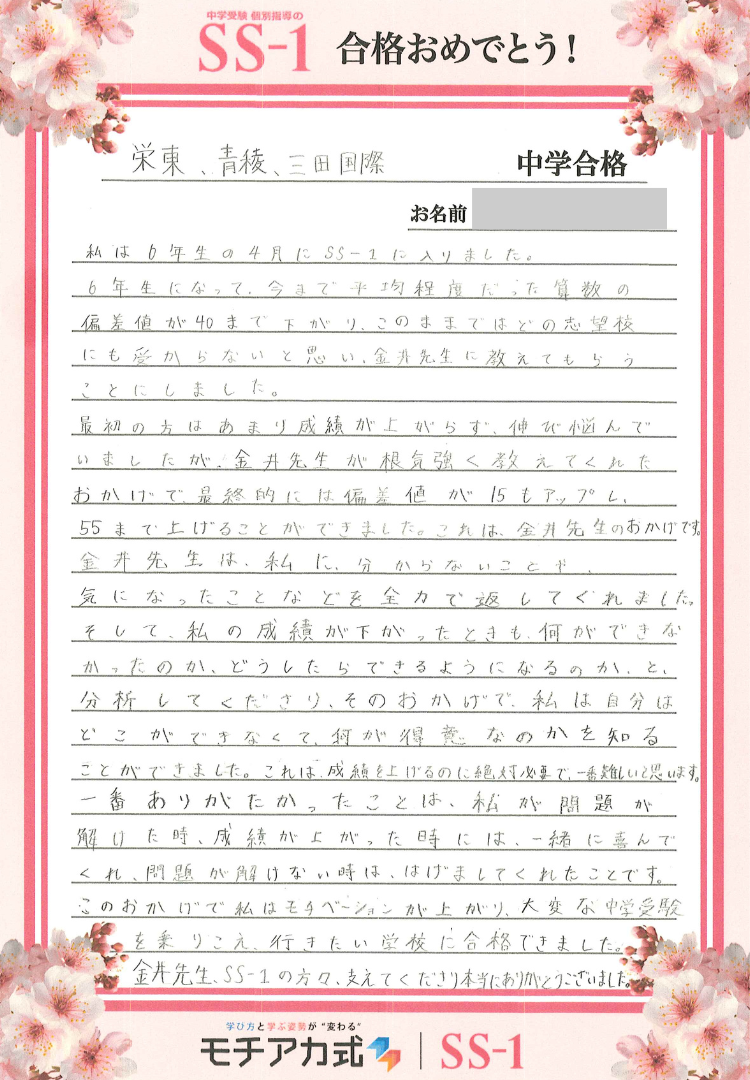 中学受験 個別指導の
SS-1 合格おめでとう！
栄東、青稜、三田国際 中学合格
お名前
私は6年生の4月にSS-1に入りました。
6年生になって、今まで平均程度だった算数の
偏差値が40まで下がり、このままではどの志望校
にも受からないと思い、金井先生に教えてもらう
ことにしました。
最初の方はあまり成績が上がらず、伸び悩んで
いましたが、金井先生が根気強く教えてくれた
おかげで、最終的には偏差値が15もアップし、
55まで上げることができました。これは、金井先生のおかげです。
金井先生は、私に、分からないことや、
気になったことなどを全力で返してくれました。
そして、私の成績が下がったときも、何ができな
かったのか、どうしたらできるようになるのか、と、
分析してくださり、そのおかげで、私は自分は
どこができなくて、何が得意なのかを知る
ことができました。これは、成績を上げるのに絶対必要で、一番難しいと思います。
一番ありがたかったことは、私が問題が
解けた時、成績が上がった時には、一緒に喜んで
くれ、問題が解けない時は、はげましてくれたことです。
このおかげで私はモチベーションが上がり、大変な中学受験
を乗りこえ、行きたい学校に合格できました。
金井先生、SS-1の方々、支えてくださり本当にありがとうございました。
学び方と学ぶ姿勢が“変わる”
モチアカ式 SS-1